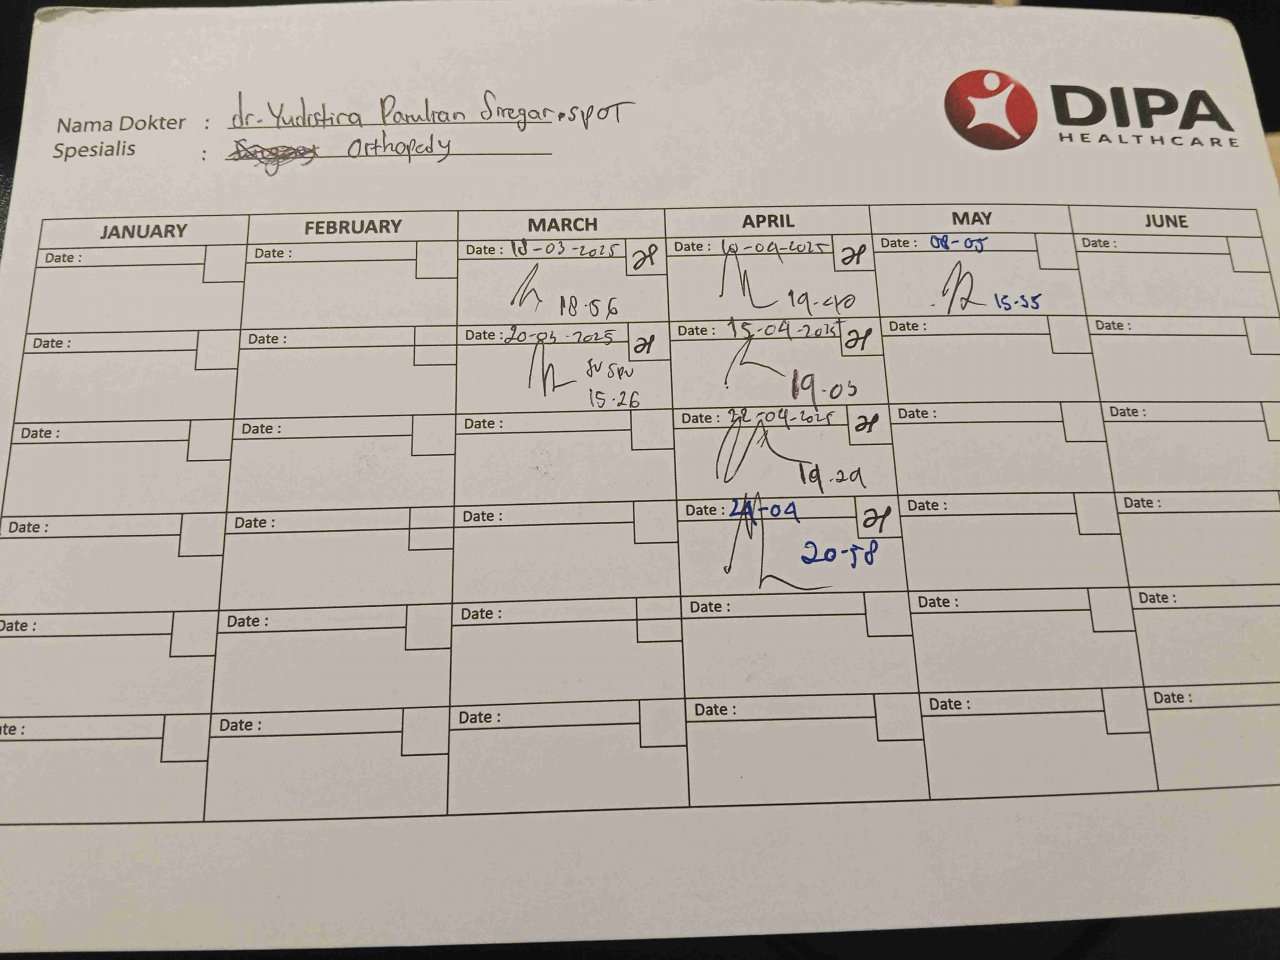 DIPA
HEALTHCARE
Nama Dokter : dr. Yudistira Parulian Siregar.SpOT
Spesialis : Orthopedy
JANUARY FEBRUARY MARCH APRIL MAY JUNE
Date : Date : Date : 18-03-2025 Date : 10-04-2025 Date : 08-05 Date :
18.56 19-40 15-35
Date : Date : Date : 20-03-2025 Date : 15-04-2025 Date : Date :
15.26 19-03
Date : Date : Date : Date : 22-04-2025 Date : Date :
19.29
Date : Date : Date : Date : 29-04 Date : Date :
20-58
Date : Date : Date : Date : Date : Date :
Date : Date : Date : Date : Date : Date :